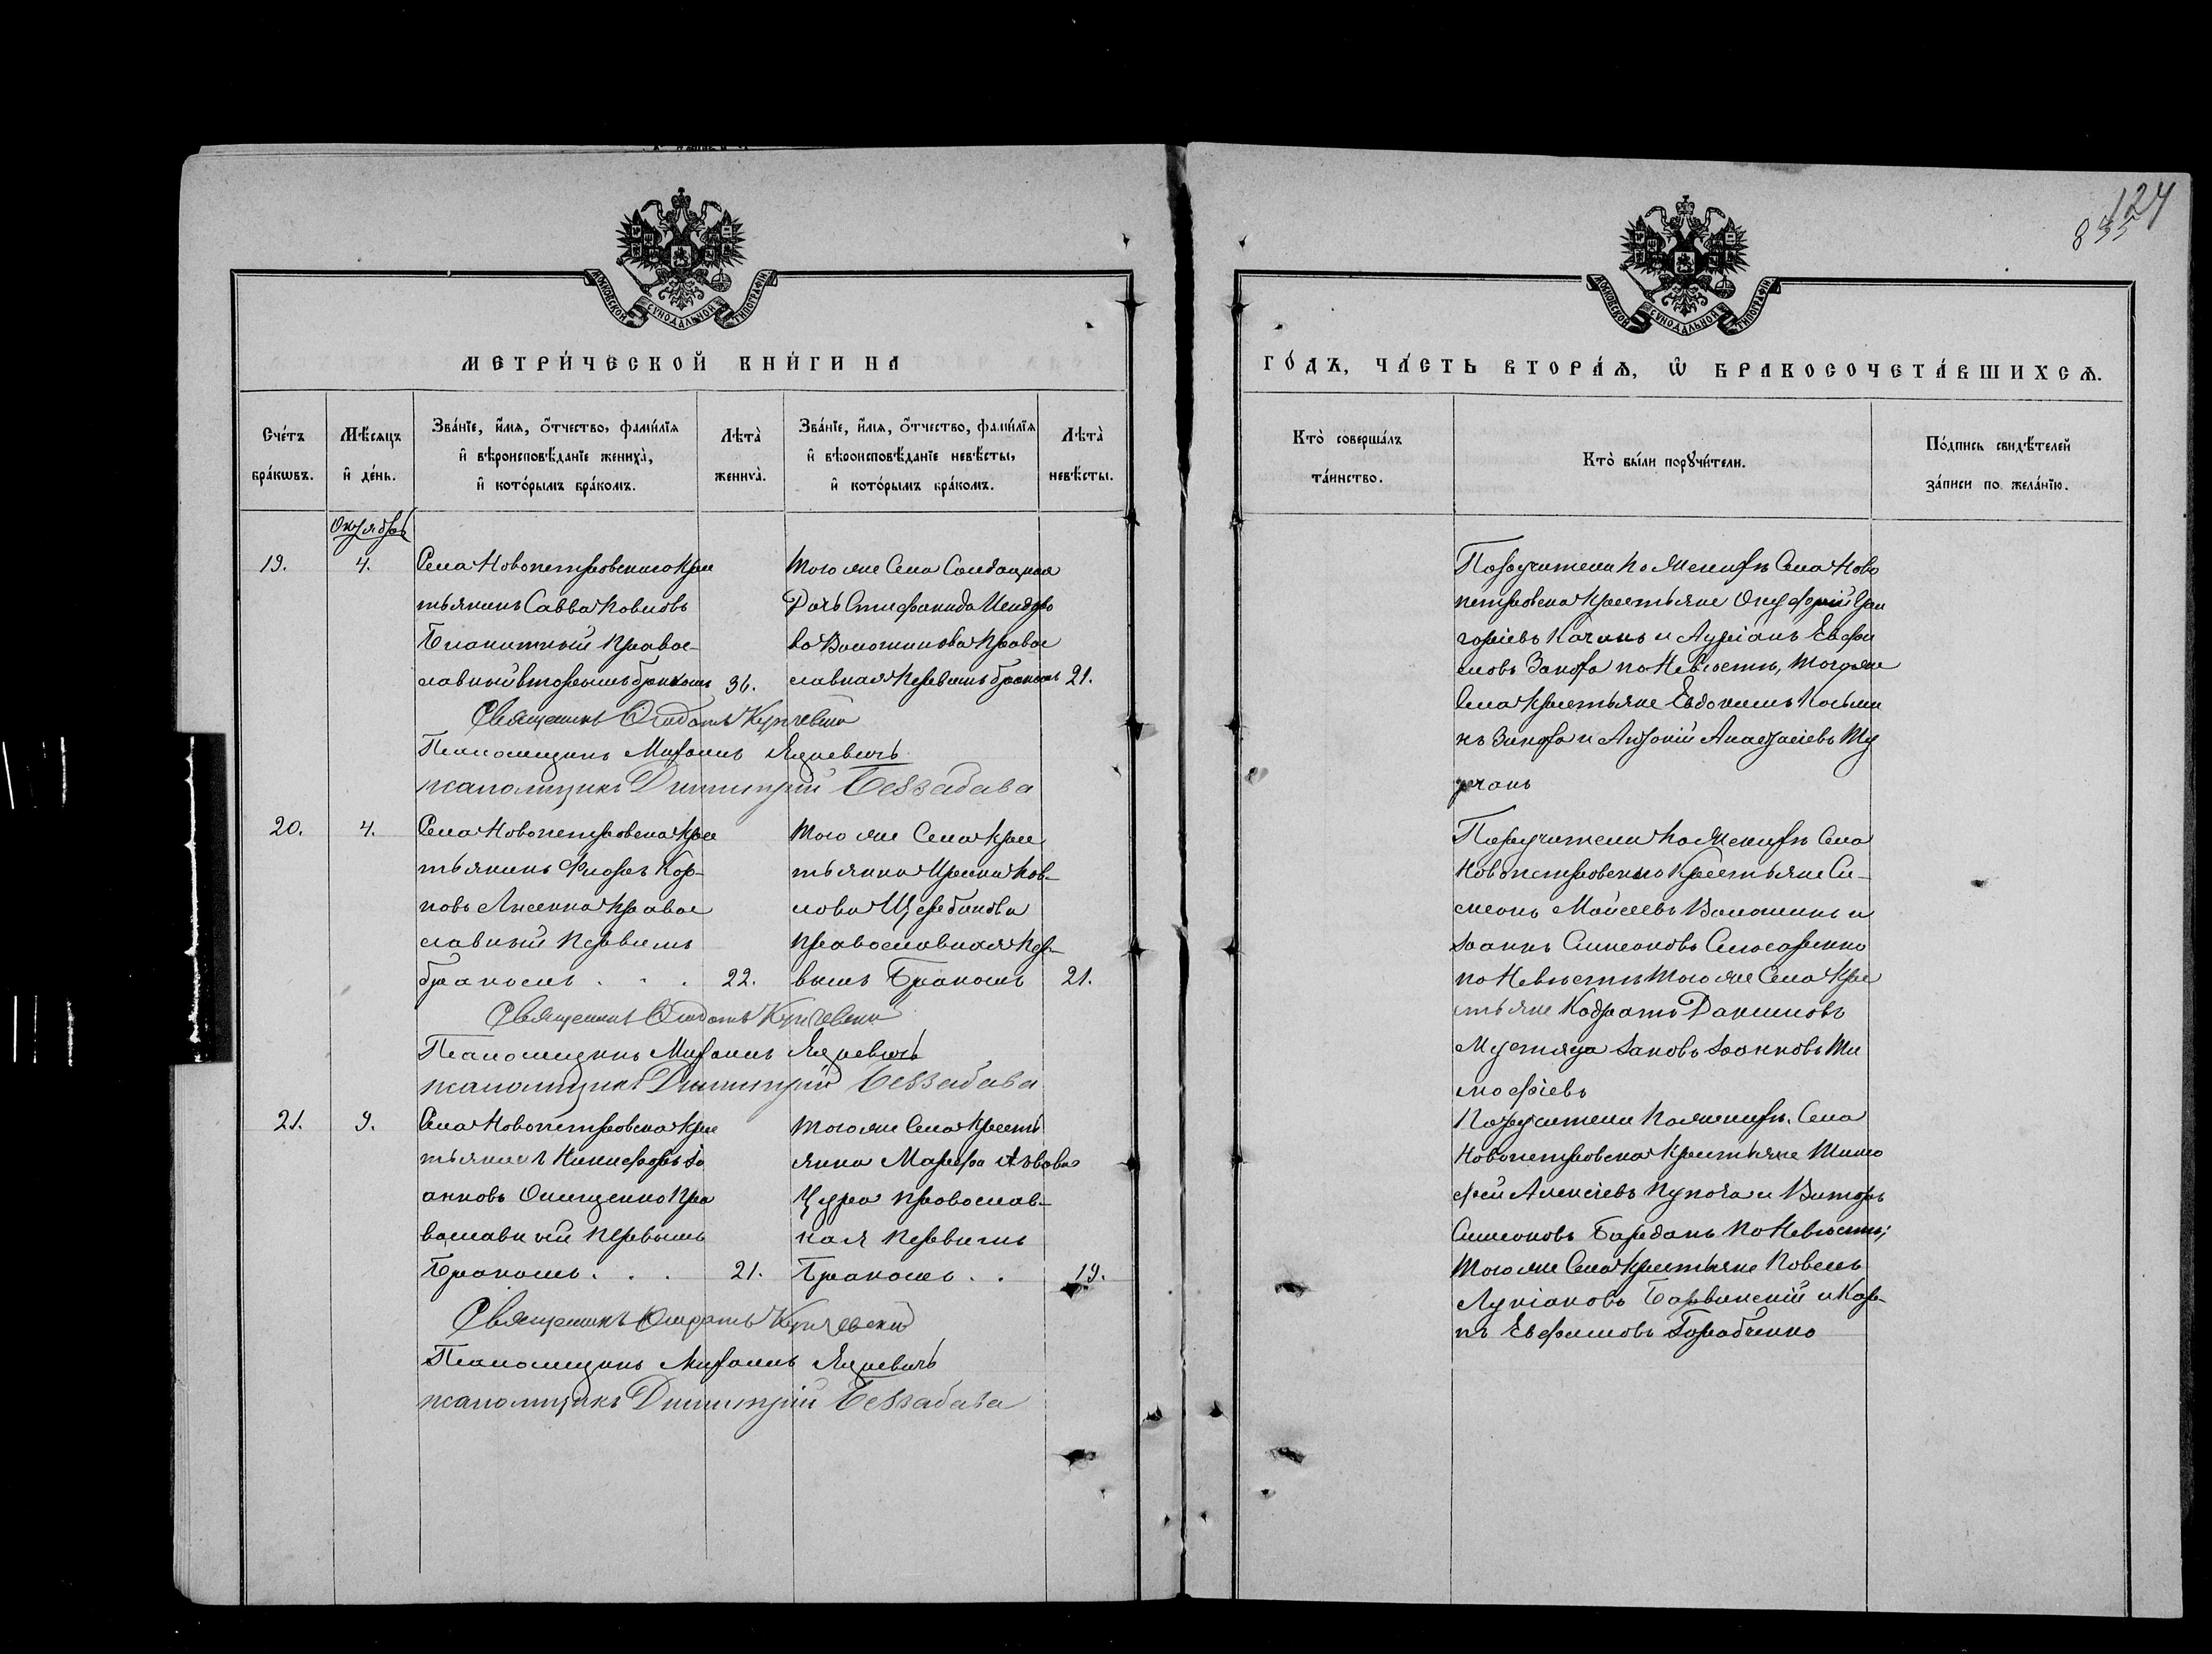 124
835
МОСКОВСКОЙ СУНОДАЛЬНОЙ ТИПОГРАФІИ
МЕТРИ́ЧЕСКОЙ КНИ́ГИ НА
Сче́тъ бра́кѡвъ.
Мѣ́сяцъ и҆ де́нь.
Зва́нїе, и҆́мя, ѻ҆́тчество, фами́лїя
и҆ вѣроисповѣ́данїе жениха̀,
и҆ кото́рымъ бра́комъ.
Лѣта̀ жениха̀.
Зва́нїе, и҆́мя, ѻ҆́тчество, фами́лїя
и҆ вѣроисповѣ́данїе невѣ́сты,
и҆ кото́рымъ бра́комъ.
Лѣта̀ невѣ́сты.
Октябрь
19.
4.
Села Новопетровскаго Крес
тьянинъ Савва Павловъ
Блакитный Правос-
лавный вторымъ бракомъ
36.
Того же Села Солдацкая
Дочь Стефанида
Волошинова Правос
лавная Первымъ бракомъ
21.
Священникъ
Псаломщикъ Михаилъ Яцкевичъ
псаломщикъ Димитрій Беззабава
20.
4.
Села Новопетровска Крес
тьянинъ Флоръ Кар-
повъ Лысенко Правос
лавный Первымъ
бракомъ . . .
22.
Того же Села Крес
тьянка Ирина Пав-
лова Щербакова
Православная Пер-
вымъ Бракомъ
21.
Священникъ
Псаломщикъ Михаилъ Яцкевичъ
псаломщикъ Димитрій Беззабава
21.
9.
Села Новопетровска Крес
тьянинъ Никифоръ Іо
анновъ Онищенко Пра
вославный Первымъ
Бракомъ . . .
21.
Того же Села Кресть
янка Марфа Львова
Цурка Православ-
ная Первымъ
Бракомъ . .
19.
Священникъ
Псаломщикъ Михаилъ Яцкевичъ
псаломщикъ Димитрій Беззабава
МОСКОВСКОЙ СУНОДАЛЬНОЙ ТИПОГРАФІИ
ГО́ДЪ, ЧА́СТЬ ВТОРА́Ѧ, Ѽ БРАКОСОЧЕТА́ВШИХСѦ.
Кто̀ соверша́лъ та́инство.
Кто̀ бы́ли порꙋчи́тели.
По́дпись свидѣ́телей за́писи по жела́нїю.
Поручители По Женихѣ Села Ново
петровска Крестьяне Онуфрій Гри
горіевъ Качанъ и Евфи
мовъ Занфа по Невѣстѣ, Тогоже
Села Крестьяне Евдокимъ Косьми
нъ Занфа и Антоній Анастасіевъ Ту
рчанъ
Поручители По Женихѣ Села
Новопетровскаго Крестьяне Си-
меонъ Мойсеевъ Волошинъ и
Іоаннъ Симеоновъ Слюсаренко
по Невѣстѣ Того же Села Крес
тьяне Кодратъ Данииловъ
Мустяца Іаковъ Іоанновъ Ти
мофіевъ
Поручители По женихѣ Села
Новопетровска Крестьяне Тимо
фей Алексіевъ и Викторъ
Симеоновъ Барданъ По Невѣстѣ;
Того же Села Крестьяне Павелъ
Лукіановъ Барвинскій и Кар-
пъ Евфимовъ Горобченко